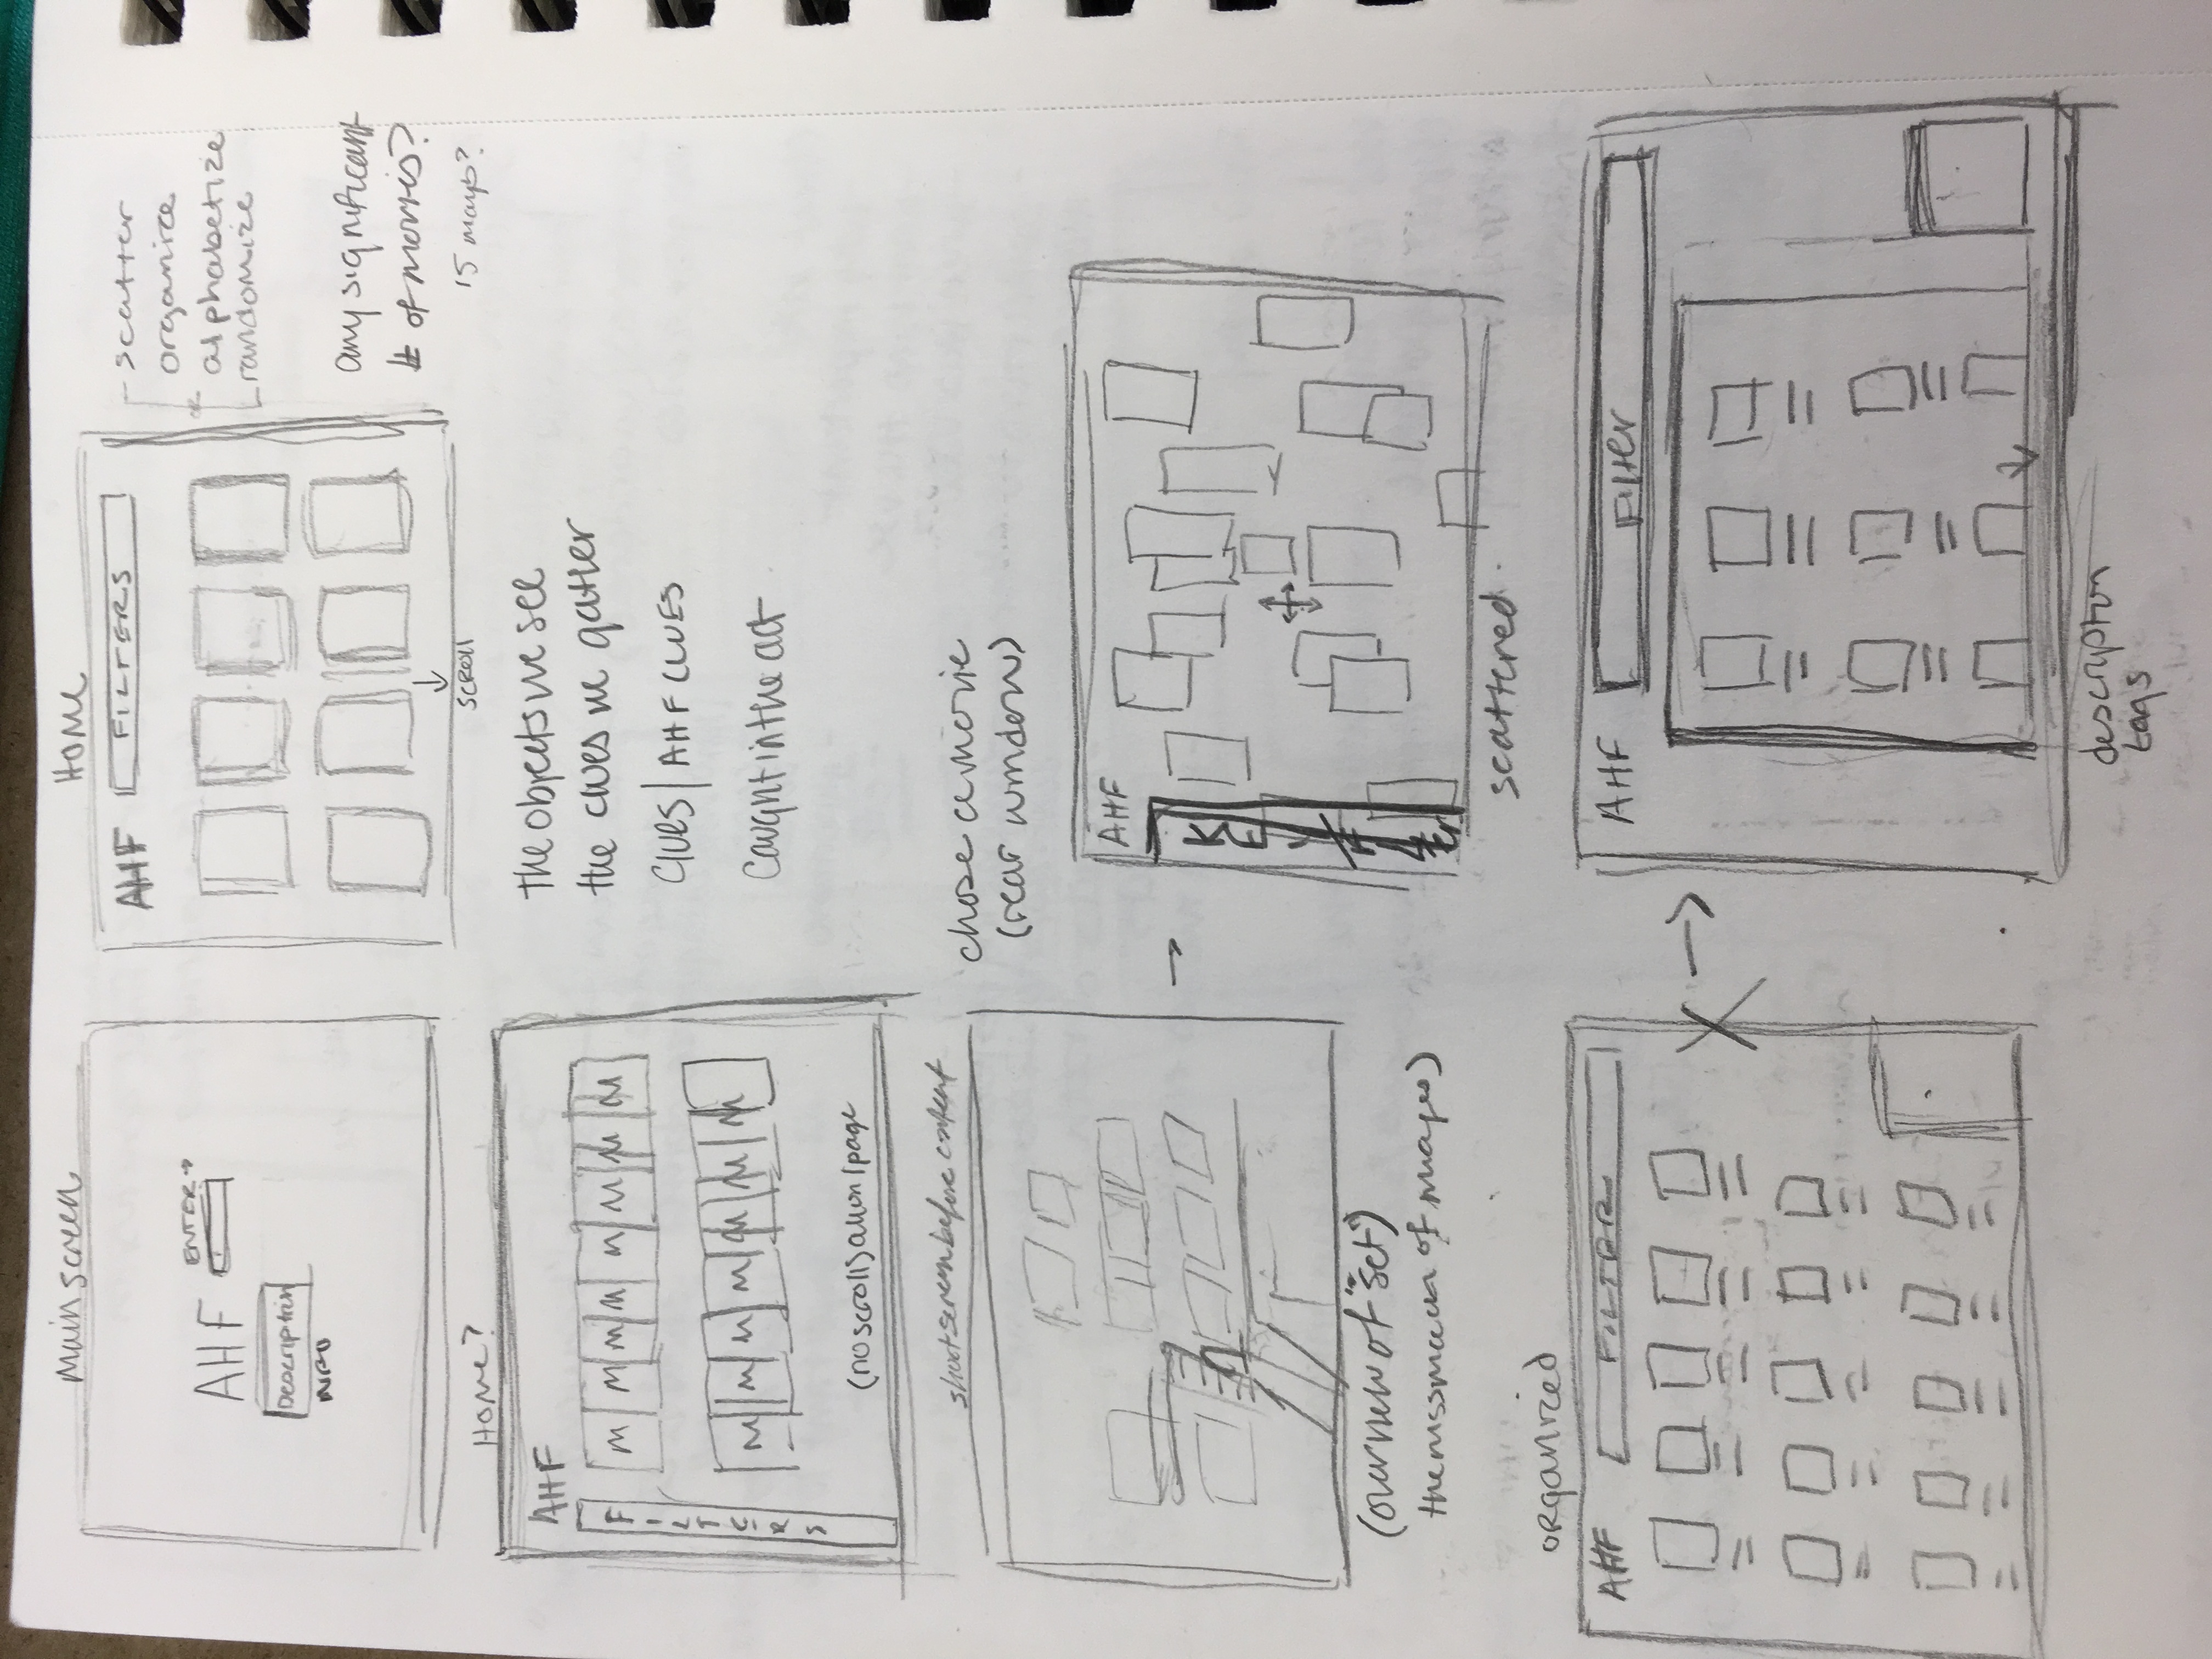 Main screen
AHF
ENTER →
Description
INFO
Home
AHF
FILTERS
scatter
organize
alphabetize
randomize
SCROLL
any significant
# of movies?
15 mayb?
Home?
AHF
FILTERS
M M M M M M M M
M M M M M M M
(no scroll) all on 1 page
the objects we see
the clues we gather
Clues | AHF CLUES
Caught in the act
short screen before content
(overview of "set")
of images)
chose a movie
(rear window)
→
AHF
KEY/Filter
scattered
organized
AHF
FILTER
X →
AHF
Filter
description
tags